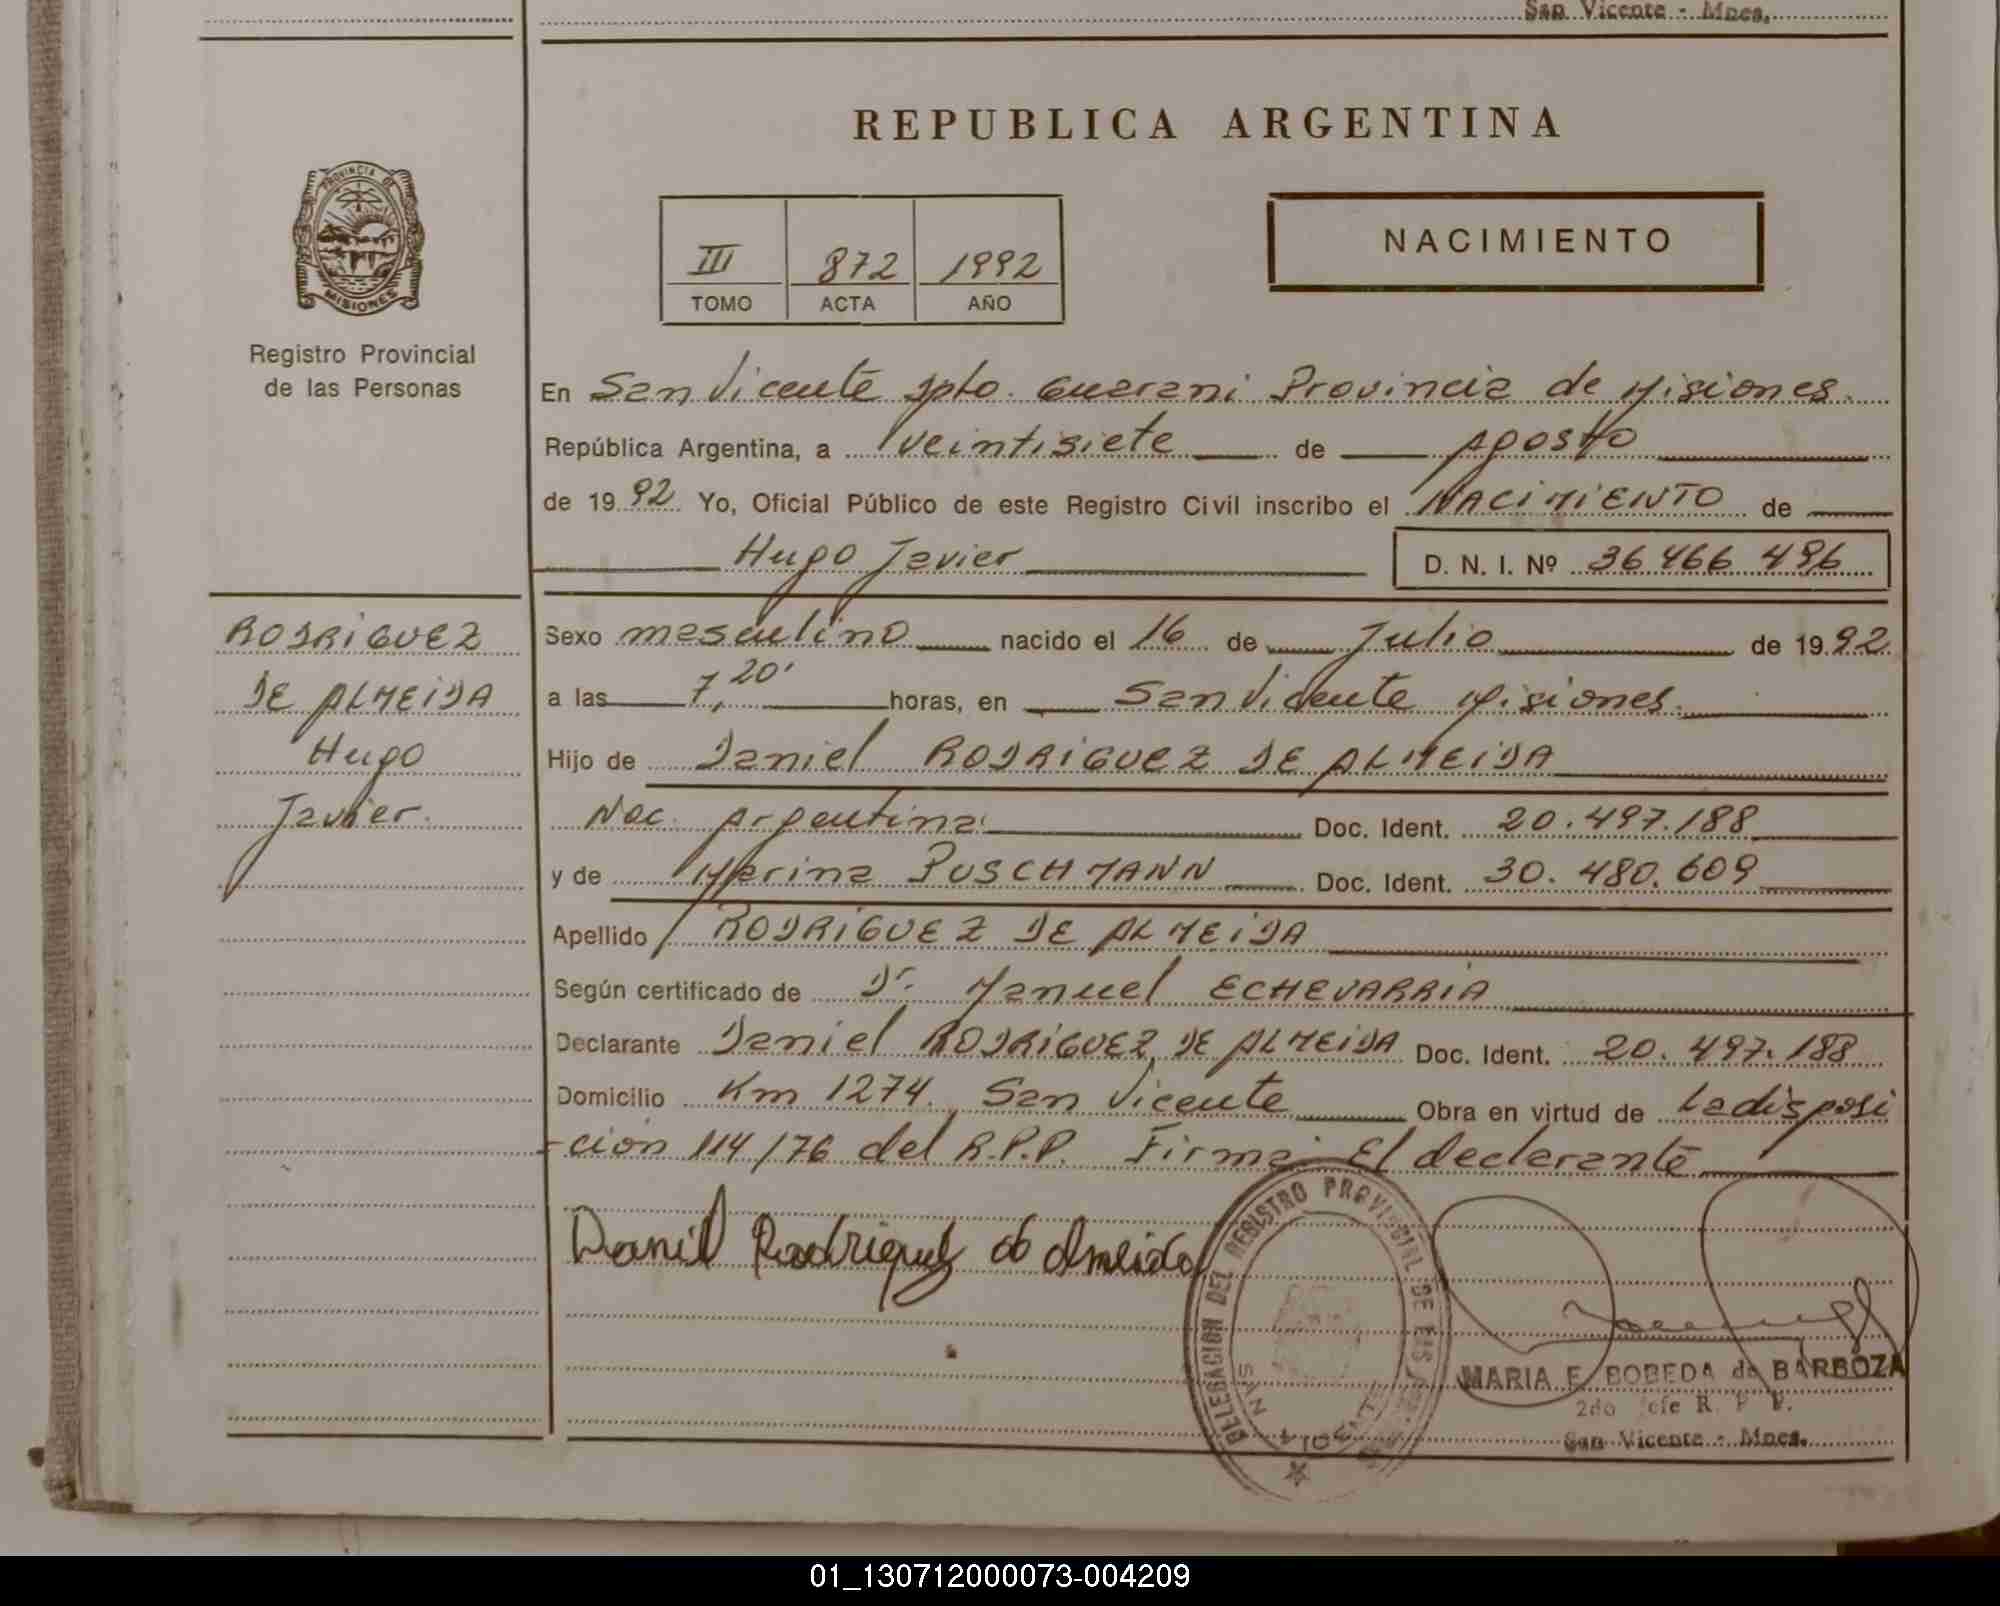 San Vicente - Mnes.
REPUBLICA ARGENTINA
PROVINCIA DE
MISIONES
Registro Provincial
de las Personas
III 872 1992
TOMO ACTA AÑO
NACIMIENTO
En San Vicente Dpto. Guarani Provincia de Misiones.
República Argentina, a veintisiete de Agosto
de 1992 Yo, Oficial Público de este Registro Civil inscribo el NACIMIENTO de
Hugo Javier D. N. I. Nº 36 466 496
RODRIGUEZ
DE ALMEIDA
Hugo
Javier.
Sexo masculino nacido el 16 de Julio de 1992
a las 7,20' horas, en San Vicente Misiones.
Hijo de Daniel RODRIGUEZ DE ALMEIDA
Nac. Argentina Doc. Ident. 20.497.188
y de Marina PUSCHMANN Doc. Ident. 30.480.609
Apellido RODRIGUEZ DE ALMEIDA
Según certificado de Dr. Manuel ECHEVARRIA
Declarante Daniel RODRIGUEZ DE ALMEIDA Doc. Ident. 20.497.188
Domicilio Km 1274. San Vicente Obra en virtud de La disposi
-ción 114/76 del R.P.P. Firma: El declarante
Daniel Rodriguez de Almeida
DELEGACION DEL REGISTRO PROVINCIAL DE LAS
SAN VICENTE
MARIA E. BOBEDA de BARBOZA
2do Jefe R. P. P.
San Vicente - Mnes.
01_130712000073-004209